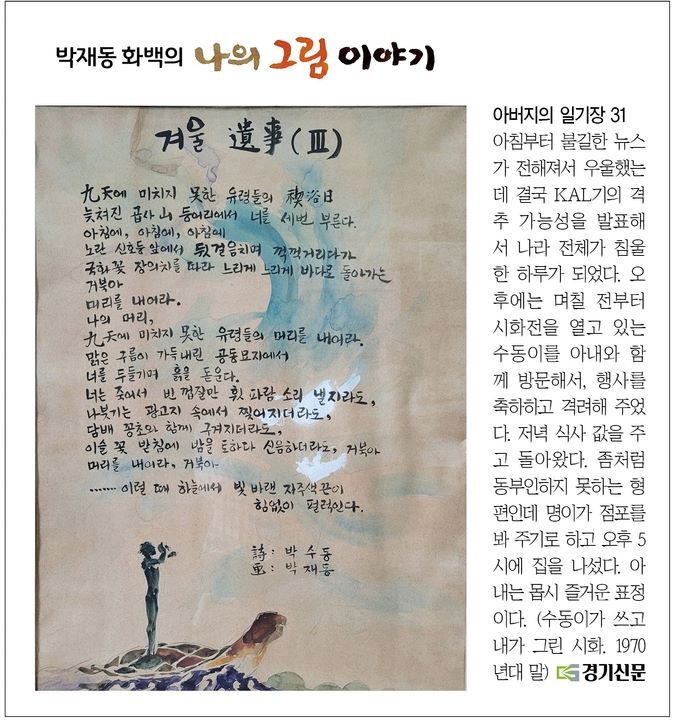 박재동 화백의 나의 그림 이야기
겨울 遺事(Ⅲ)
九天에 미치지 못한 유령들의 禊浴日
늦쳐진 급사 山 등어리에서 너를 세번 부른다.
아침에, 아침에, 아침에
노란 신호등앞에서 뒷걸음치며 깍깍거리다가
국화꽃 장의차를 따라 느리게 느리게 바다로 돌아가는
거북아
머리를 내어라.
나의 머리,
九天에 미치지 못한 유령들의 머리를 내어라.
맑은 구름이 가득내린 공동묘지에서
너를 두들기며 흙을 돋운다.
너는 죽어서 빈 껍질만 휫 파람 소리 낼지라도,
나붓기는 광고지 속에서 찢어지더라도,
담배 꽁초와 함께 구겨지더라도,
이슬 꽃 받침에 밤을 토하다 신음하더라도, 거북아
머리를 내어라, 거북아
…… 이럴 때 하늘에서 빛 바랜 자주색끈이
힘없이 펄럭인다.
詩: 박수동
画: 박재동
아버지의 일기장 31
아침부터 불길한 뉴스
가 전해져서 우울했는
데 결국 KAL기의 격
추 가능성을 발표해
서 나라 전체가 침울
한 하루가 되었다. 오
후에는 며칠 전부터
시화전을 열고 있는
수동이를 아내와 함
께 방문해서, 행사를
축하하고 격려해 주었
다. 저녁 식사 값을 주
고 돌아왔다. 좀처럼
동부인하지 못하는 형
편인데 명이가 점포를
봐 주기로 하고 오후 5
시에 집을 나섰다. 아
내는 몹시 즐거운 표정
이다. (수동이가 쓰고
내가 그린 시화. 1970
년대 말) 경기신문